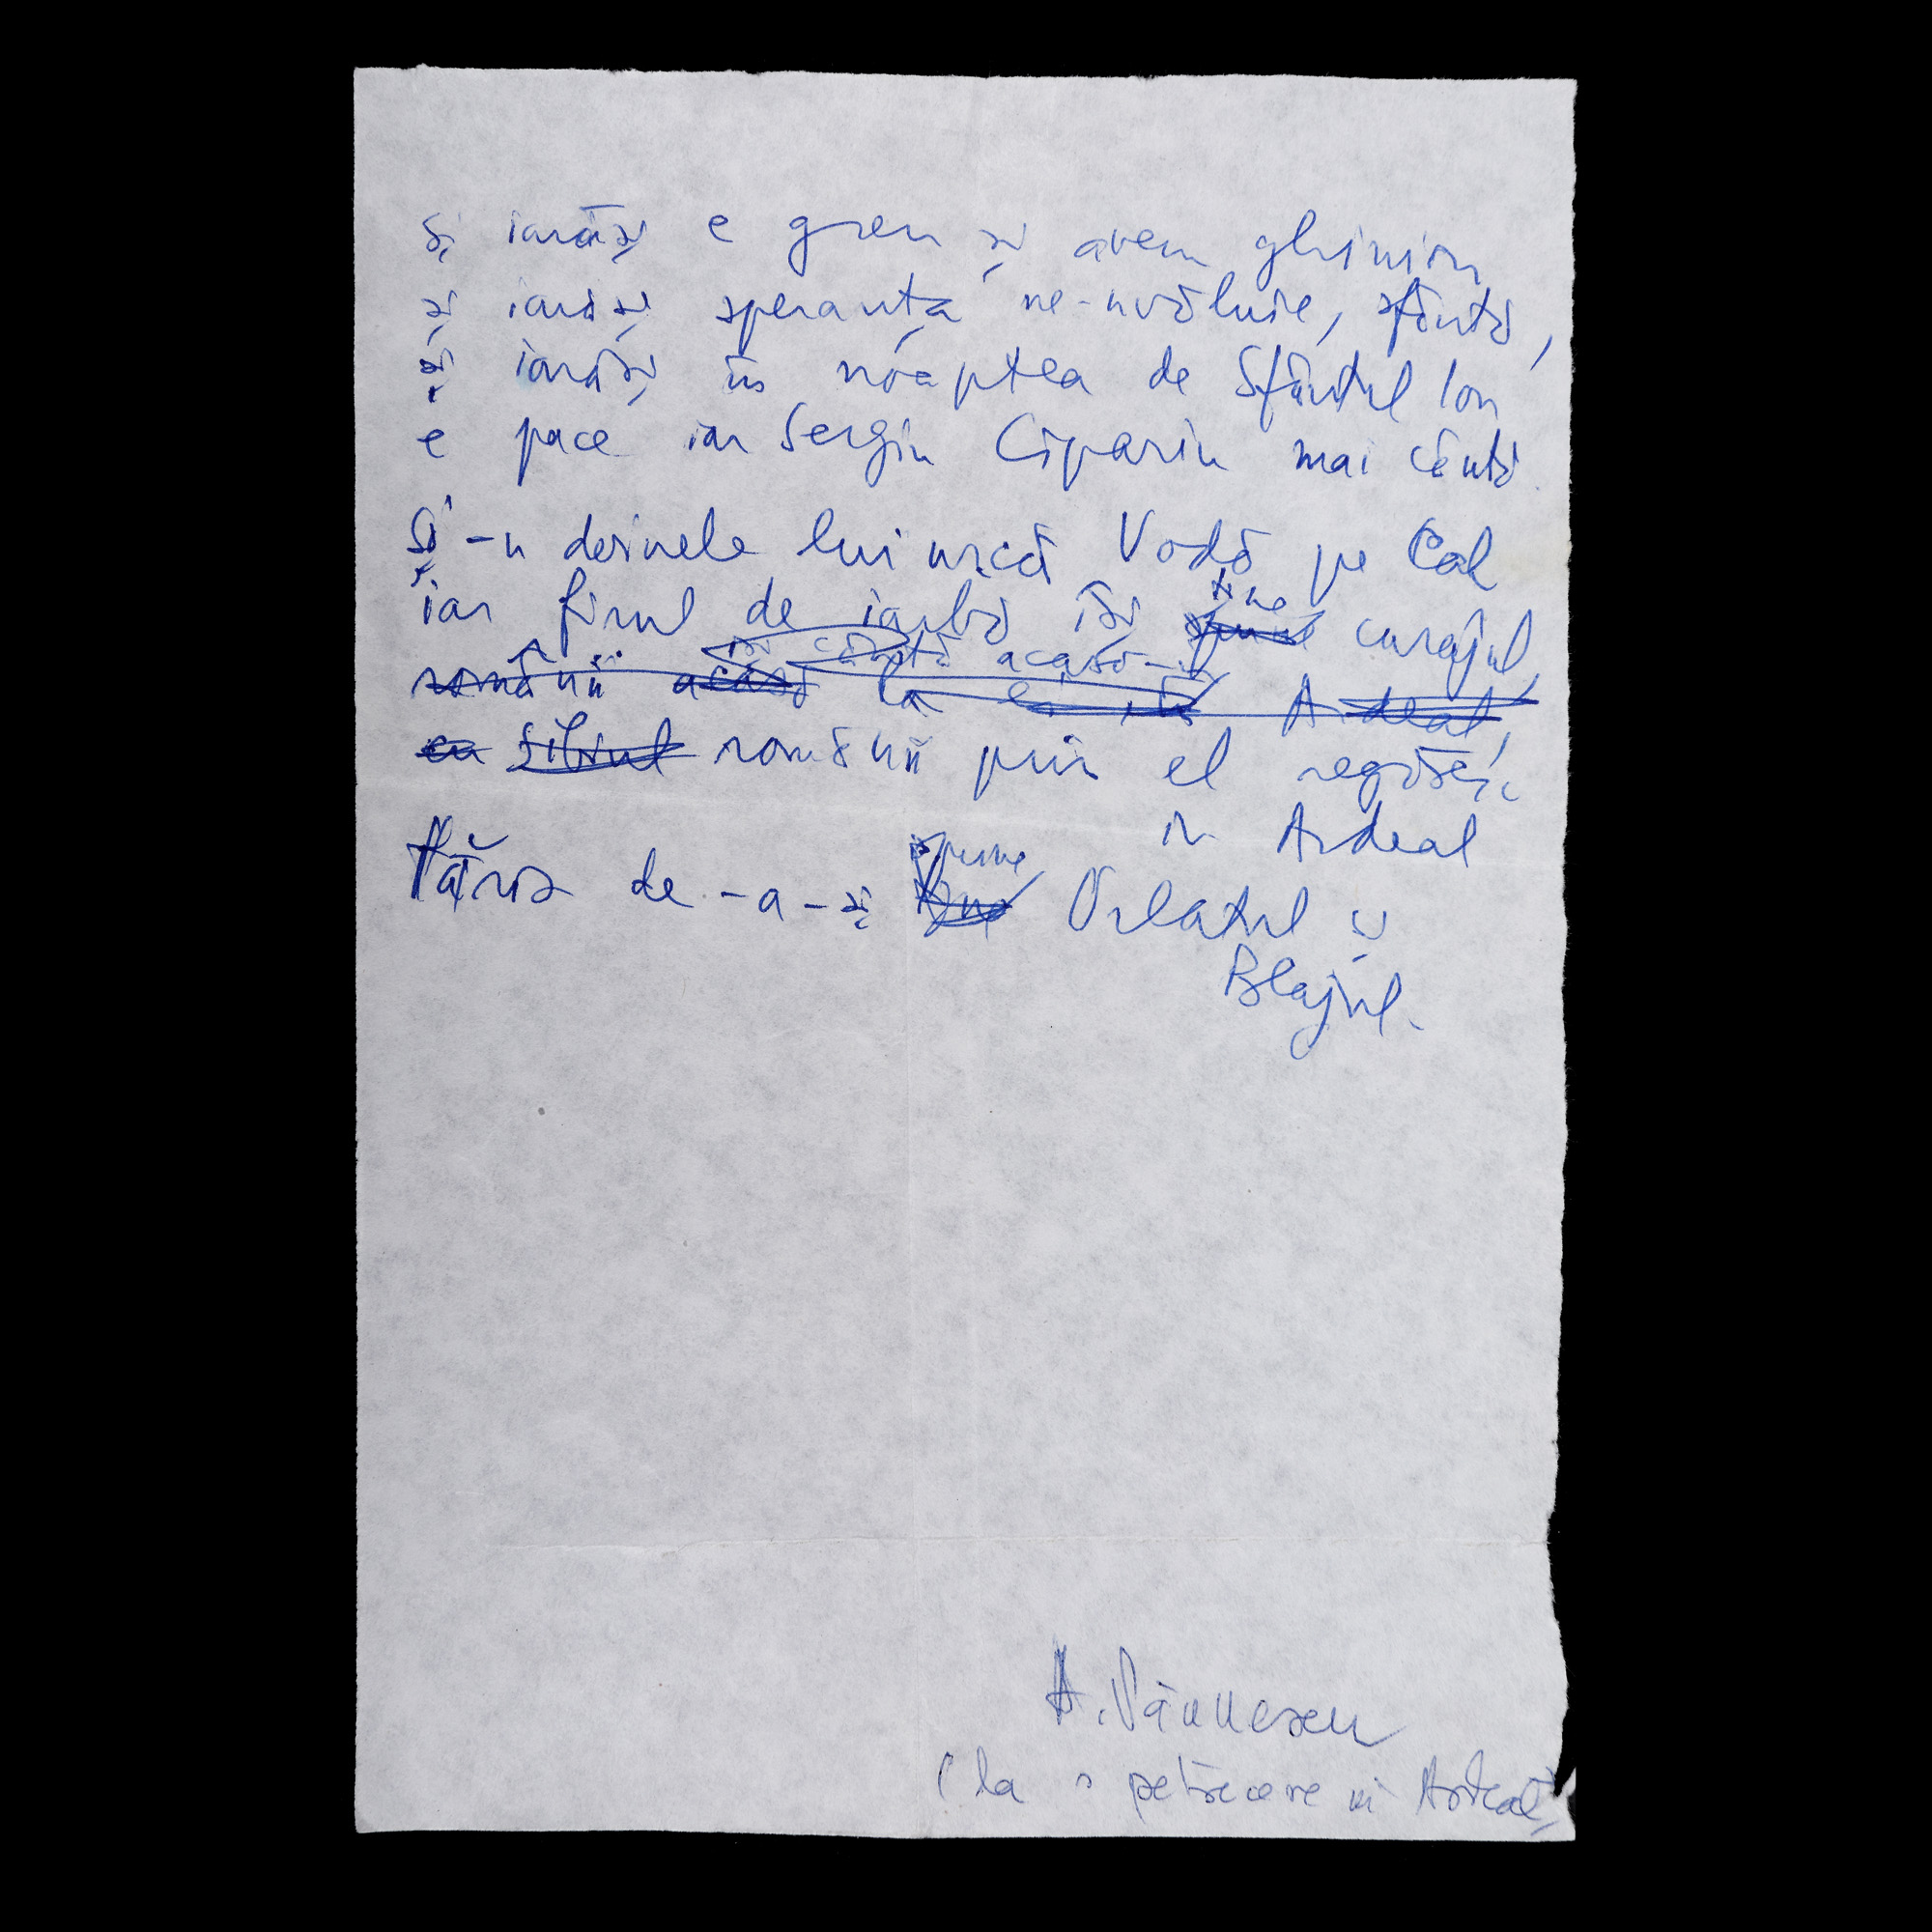 Și iarăși e greu și avem ghinion
și iarăși speranța ne-nvăluie, sfântă,
și iarăși în noaptea de Sfântul Ion
e pace iar Sergiu Cipariu mai cântă.
Și-n doinele lui urcă Vodă pe Cal
iar firul de iarbă își
ține
curajul,
își cântă acasă
românii acasă la Ardeal,
ca Sibiul românii prin el regăsesc
în Ardeal
Tăria de-a-și
spune
Orlatul și
Blajul.
A. Păunescu
(la o petrecere în Ardeal)